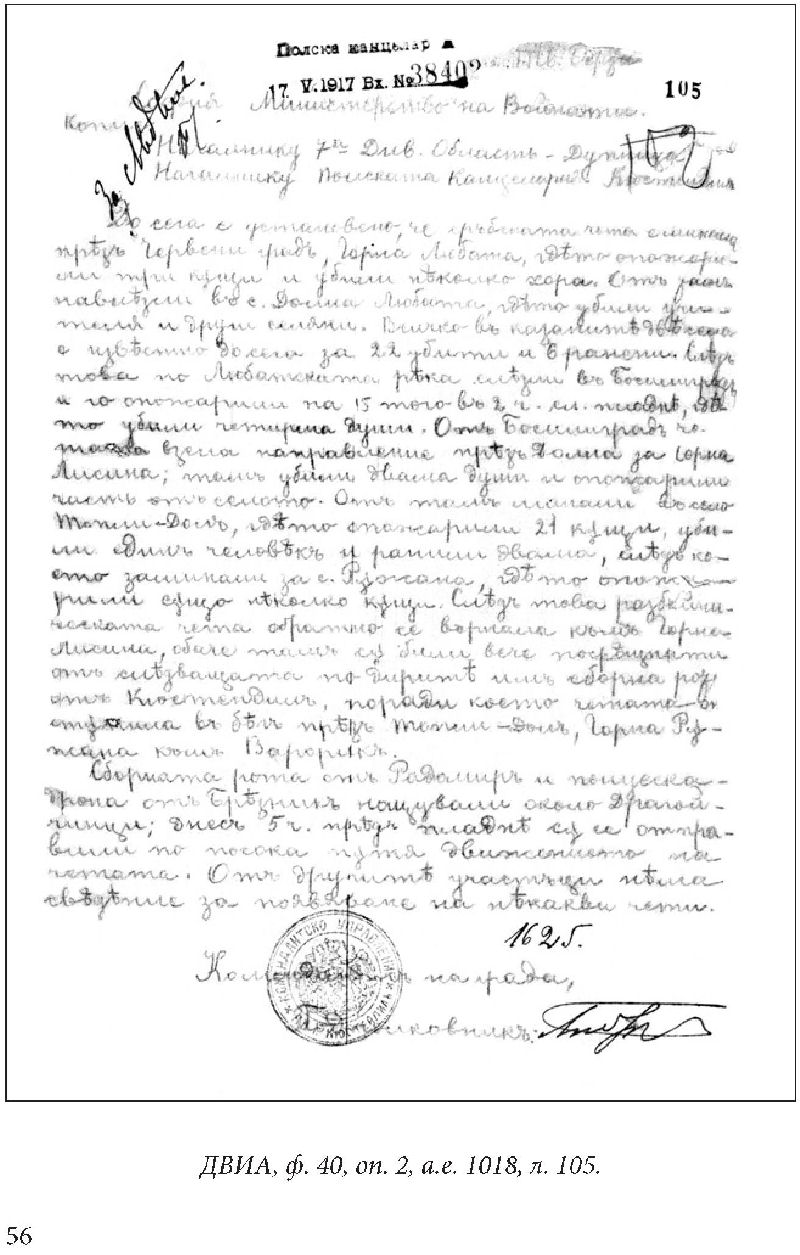 Полска канцелар
17. V. 1917 Вх. № 38402
105
Министерство на Войната.
За
Началнику 7ма Див. Область – Дупница
Началнику Полската Канцелария Кюстендил
До сега е установено, че сръбската чета е минала
прѣзъ Червени градъ, Горна Любата, гдѣто опожари-
ли три кущи и убили нѣколко хора. Отъ тамъ
навлѣзли въ с. Долна Любата, гдѣто убили учи-
теля и други селяни. Всичко въ казанитѣ двѣ села
е извѣстно до сега за 22 убити и 8 ранени. Слѣдъ
това по Любатската рѣка слѣзли въ Босилиградъ
и го опожарили на 15 того въ 2 ч. сл. пладнѣ, гдѣ-
то убили четирма души. Отъ Босилиградъ че-
тата взела направление прѣзъ Долна за Горна
Лисина; тамъ убили двама души и опожарили
часть отъ селото. Отъ тамъ въ село
Топли-Долъ, гдѣто опожарили 21 кущи, уби-
ли единъ человѣкъ и ранили двама, слѣдъ ко-
ето заминали за с. Ружана, гдѣто опожа-
рили сущо нѣколко кущи. Слѣдъ това разбойни-
ческата чета обратно се върнала къмъ Горна
Лисина, обаче тамъ сѫ били вече посрѣщнати
отъ слѣдващата по диритѣ имъ сборна рота
отъ Кюстендилъ, поради което четата о-
стъпила въ бѣгъ прѣзъ Топли-Долъ, Горна Ру-
жана къмъ
Сборната рота отъ Радомиръ и полуеска-
дрона отъ Брѣзникъ нощували около Драгой-
чинци; днесъ 5 ч. прѣдъ пладнѣ сѫ се отпра-
вили по посока пѫтя движението на
четата. Отъ другитѣ участъци нѣма
свѣдѣние за появяване на нѣкакви чети.
1625.
Комендантъ на града,
Полковникъ:
ДВИА, ф. 40, оп. 2, а.е. 1018, л. 105.
56